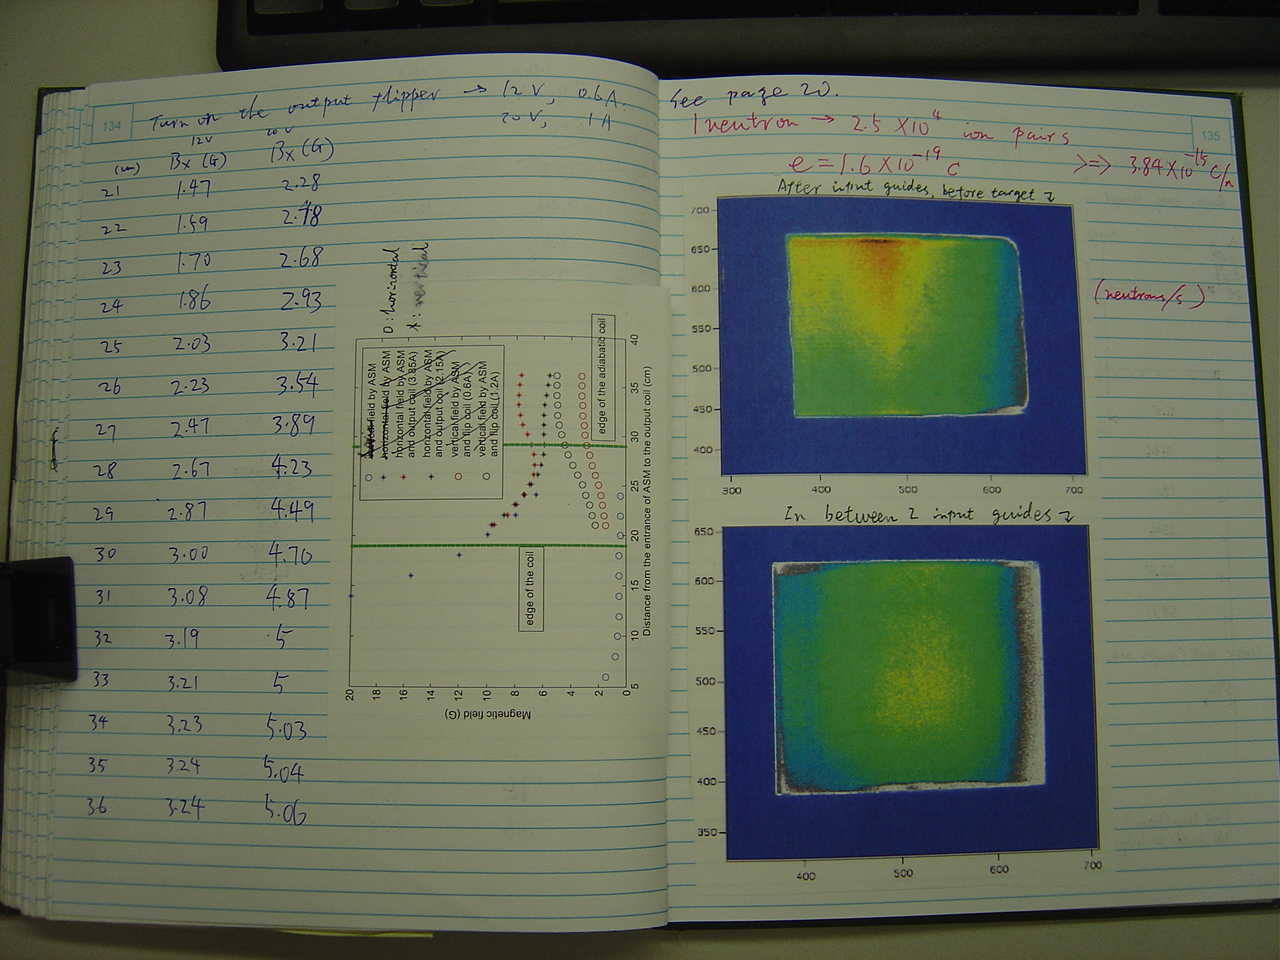 134
Turn on the output flipper → 12 V, 0.6A.
20 V, 1A
12V 20 V
(cm) Bx (G) Bx (G)
21 1.47 2.28
22 1.59 2.48
23 1.70 2.68
24 1.86 2.93
25 2.03 3.21
26 2.23 3.54
27 2.47 3.89
28 2.67 4.23
29 2.87 4.49
30 3.00 4.70
31 3.08 4.87
32 3.19 5
33 3.21 5
34 3.23 5.03
35 3.24 5.04
36 3.24 5.06
O: horizontal
*: vertical
field by ASM
horizontal field by ASM
horizontal field by ASM
and output coil (3.85A)
horizontal field by ASM
and output coil (2.15A)
vertical field by ASM
and flip coil (0.6A)
vertical field by ASM
and flip coil (1.2A)
edge of the adiabatic coil
edge of the coil
Magnetic field (G)
20 18 16 14 12 10 8 6 4 2 0
Distance from the entrance of ASM to the output coil (cm)
5 10 15 20 25 30 35 40
See page 20.
135
1 neutron → 2.5 X10⁴ ion pairs
e = 1.6 X10⁻¹⁹ C
>=> 3.84 X10⁻¹⁵ C/n
After input guides, before target ↴
700
650
600
550
500
450
400
300 400 500 600 700
(neutrons/s)
In between 2 input guides ↴
650
600
550
500
450
400
350
400 500 600 700